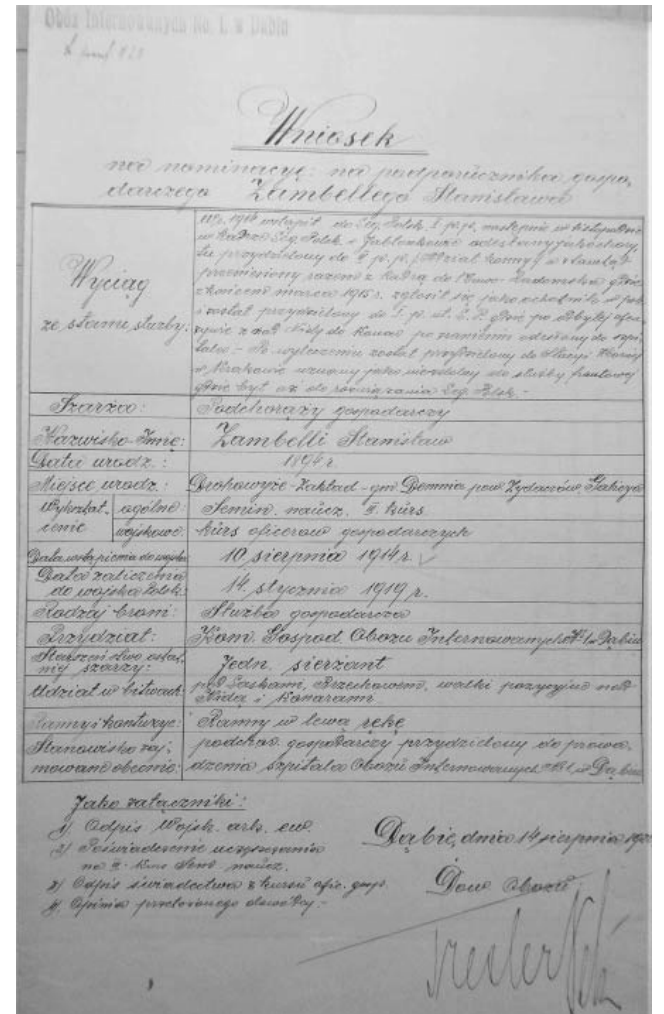 Obóz Internowanych No. 1. w Dąbiu
Wniosek
na nominacyę: na podporucznika gospo,
darczego Zambellego Stanisława
Wyciąg
ze stanu służby:
1914 wstąpił do Leg. Polsk. następnie w listopadzie
w kadrze Leg. Polsk. w Jabłonkowie odesłany jako chory,
tu przydzielony do
przeniesiony razem z kadrą do Radomska gdzie
z końcem marca 1915 r. zgłosił się jako ochotnik w pole
i został przydzielony do I. p. uł. L. P. gdzie po odbytej
z nad Nidy do Konar po zranieniu odesłany do szpi,
tala. – Po wyleczeniu został przydzielony do Stacyi
w Krakowie uznany jako niezdolny do służby frontowej
gdzie był aż do rozwiązania Leg. Polsk. –
Szarża: Podchorąży gospodarczy
Nazwisko–Imię: Zambelli Stanisław
Data urodz.: 1894 r.
Miejsce urodz.: Drohowyże–Zakład–gm Demnia pow. Żydaczów, Galicya
Wykształ. ogólne: Semin. naucz. II. kurs
cenie wojskowe: kurs oficerów gospodarczych
Data wstąpienia do wojska 10 sierpnia 1914 r.
Data zaliczenia
do wojska Polsk: 14. stycznia 1919 r.
Rodzaj broni: Służba gospodarcza
Przydział: Kom. Gospod. Obozu Internowanych No 1 w Dąbiu
Starszeństwo ostat,
niej szarży: Jedn. sierżant
Udział w bitwach: pod Laskami, Brzechowem, walki pozycyjne nad
Nidą i Konarami
Ranny i kontuzye: Ranny w lewą rękę
Stanowisko zaj,
mowane obecnie:
podchor. gospodarczy przydzielony do prowa,
dzenia szpitala Obozu Internowanych No 1, w Dąbiu
Jako załączniki:
1/ Odpis Wojsk. ark. ew.
2/ Poświadczenie uczęszczania
na II. kurs Sem. naucz.
3/ Odpis świadectwa z kursu ofic. gosp.
4/ Opinia przełożonego dowódcy. –
Dąbie, dnia 14 sierpnia
Dow Obozu